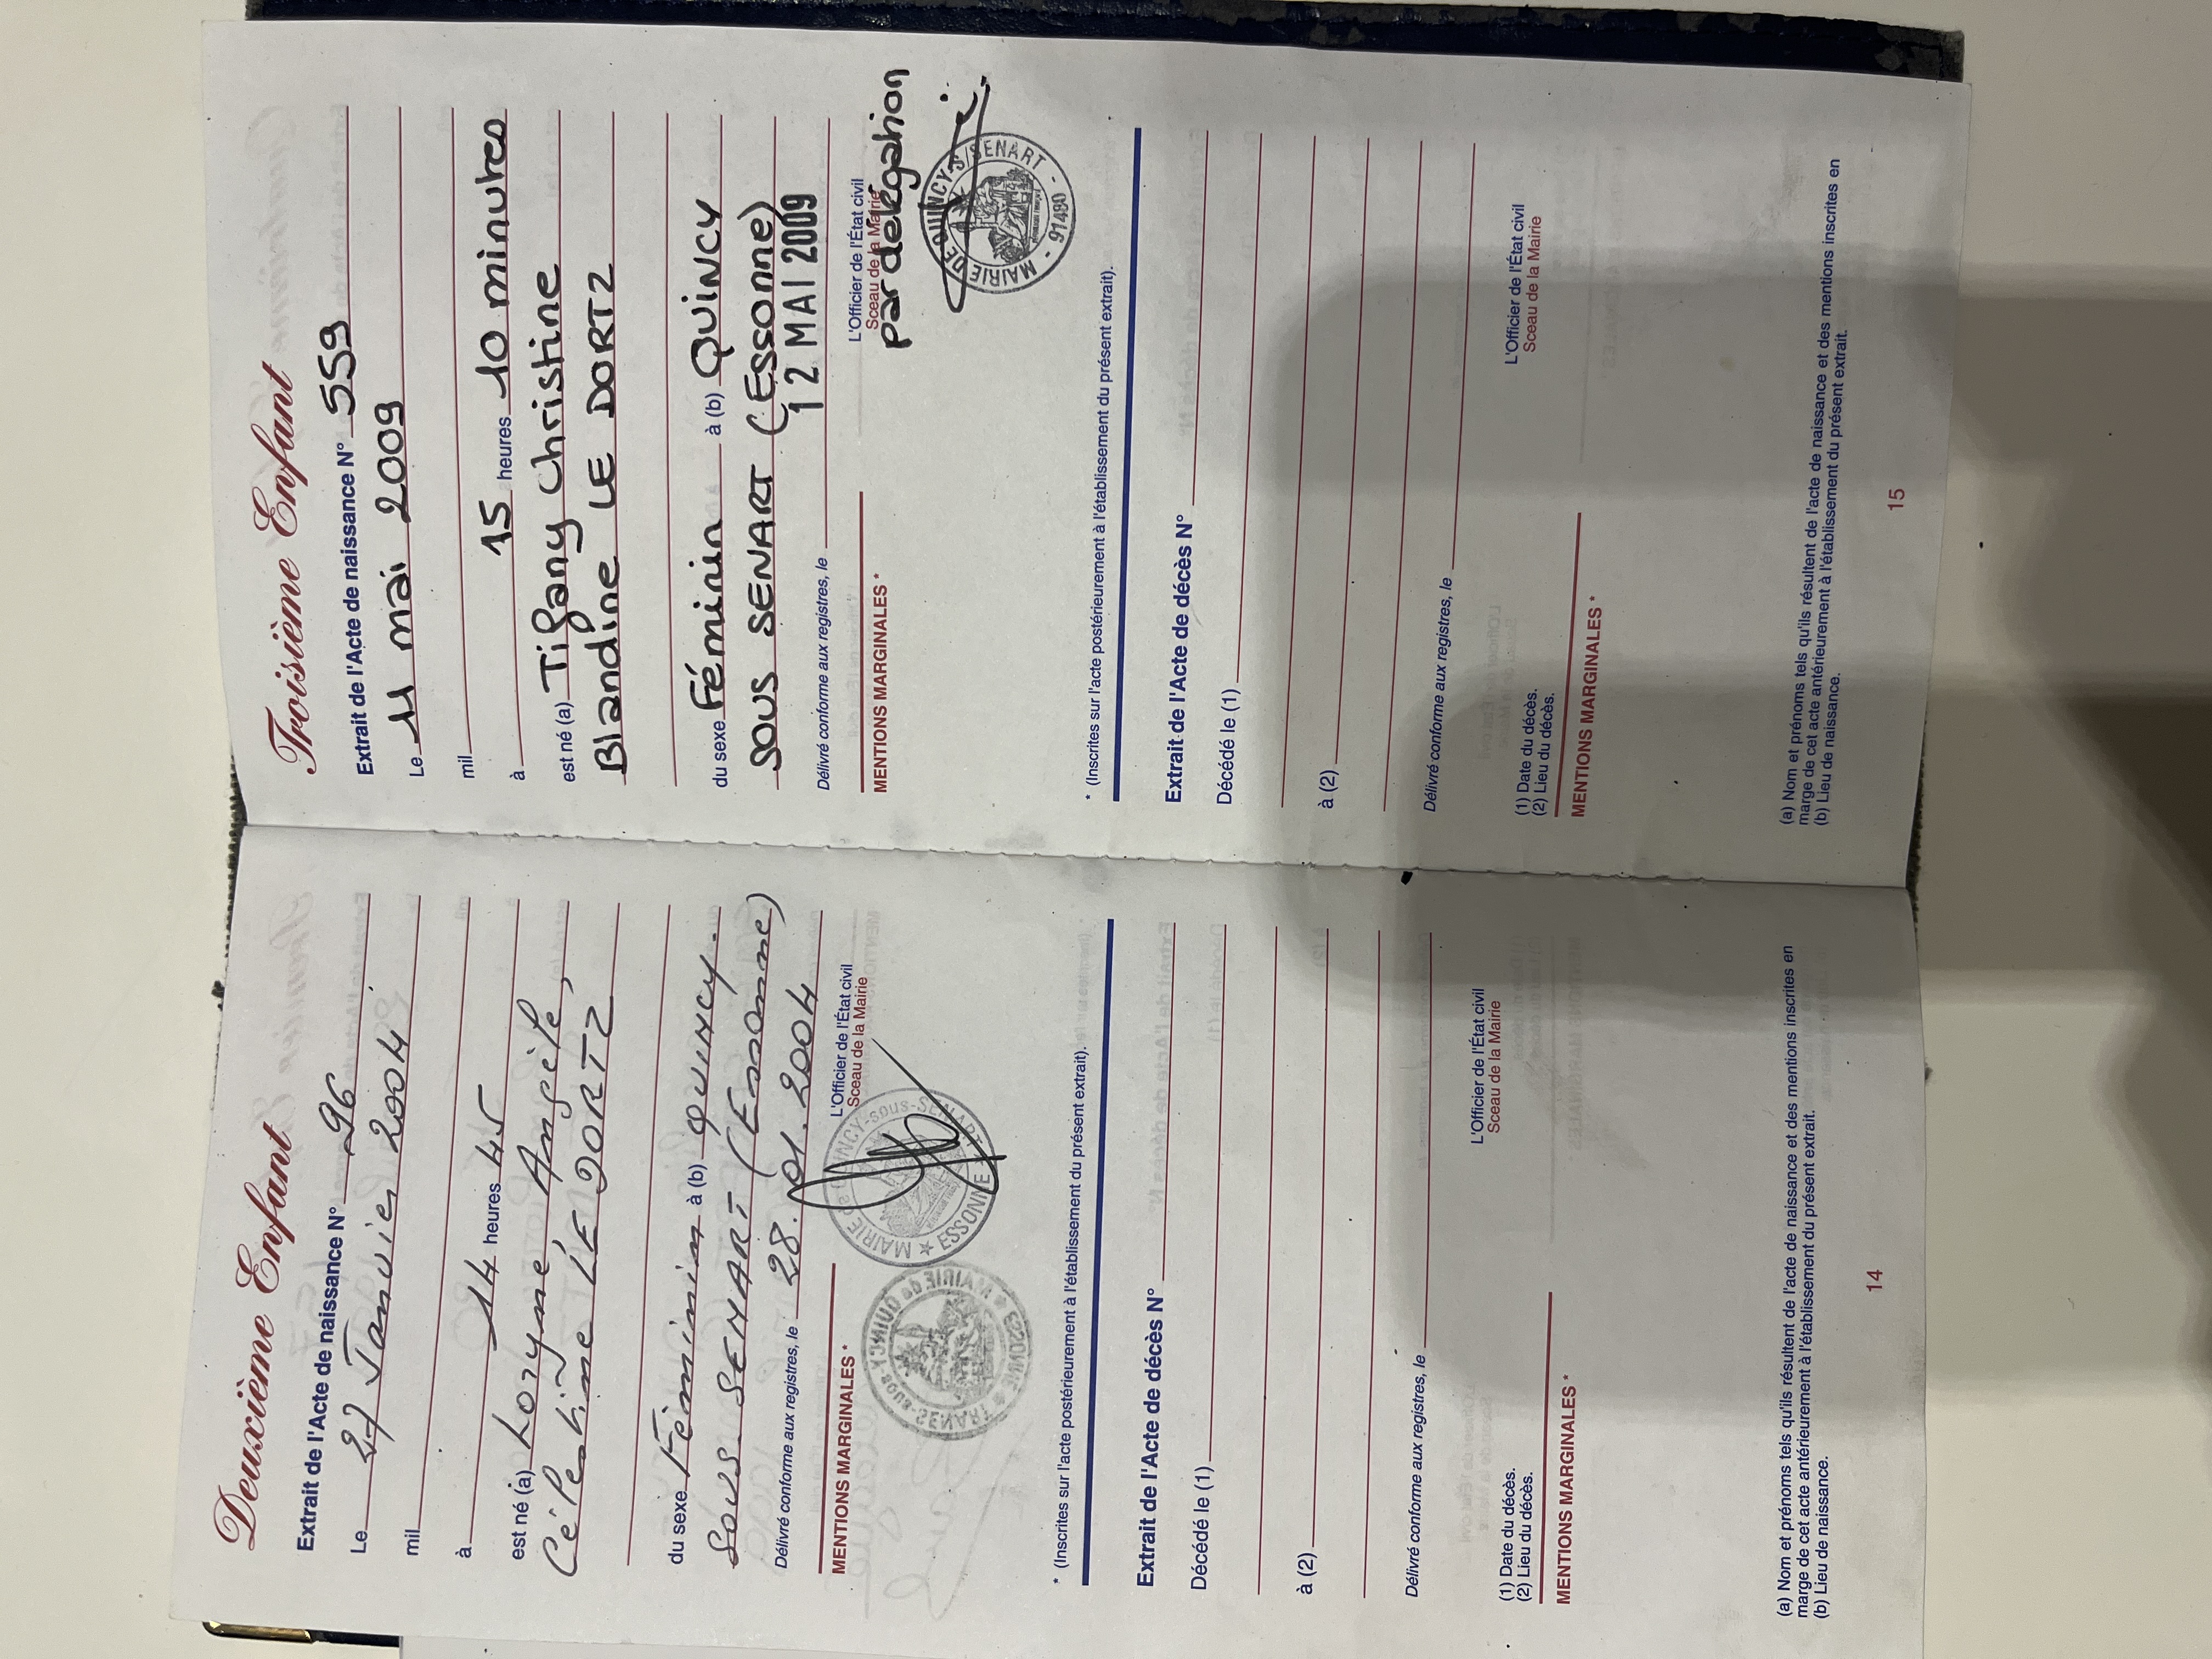 Deuxième Enfant
Extrait de l'Acte de naissance N° 96
Le 27 Janvier 2004
mil
à 14 heures 45
est né (a) Loryne, Angèle,
Célestine LE DORTZ
du sexe Féminin à (b) QUINCY-
SOUS-SENART (Essonne)
Délivré conforme aux registres, le 28.01.2004
L'Officier de l'État civil
Sceau de la Mairie
MENTIONS MARGINALES *
MAIRIE de QUINCY-sous-SENART
★ ESSONNE ★
MAIRIE de QUINCY-sous-SENART
★ ESSONNE ★
* (Inscrites sur l'acte postérieurement à l'établissement du présent extrait).
Extrait de l'Acte de décès N°
Décédé le (1)
à (2)
Délivré conforme aux registres, le
L'Officier de l'État civil
Sceau de la Mairie
(1) Date du décès.
(2) Lieu du décès.
MENTIONS MARGINALES *
(a) Nom et prénoms tels qu'ils résultent de l'acte de naissance et des mentions inscrites en
marge de cet acte antérieurement à l'établissement du présent extrait.
(b) Lieu de naissance.
14
Troisième Enfant
Extrait de l'Acte de naissance N° 559
Le 11 mai 2009
mil
à 15 heures 10 minutes
est né (a) Tifany Christine
Blandine LE DORTZ
du sexe Féminin à (b) QUINCY
SOUS SENART (Essonne)
Délivré conforme aux registres, le 12 MAI 2009
L'Officier de l'État civil
Sceau de la Mairie
par délégation
MENTIONS MARGINALES *
MAIRIE DE QUINCY-S/SENART - 91480 -
* (Inscrites sur l'acte postérieurement à l'établissement du présent extrait).
Extrait de l'Acte de décès N°
Décédé le (1)
à (2)
Délivré conforme aux registres, le
L'Officier de l'État civil
Sceau de la Mairie
(1) Date du décès.
(2) Lieu du décès.
MENTIONS MARGINALES *
(a) Nom et prénoms tels qu'ils résultent de l'acte de naissance et des mentions inscrites en
marge de cet acte antérieurement à l'établissement du présent extrait.
(b) Lieu de naissance.
15